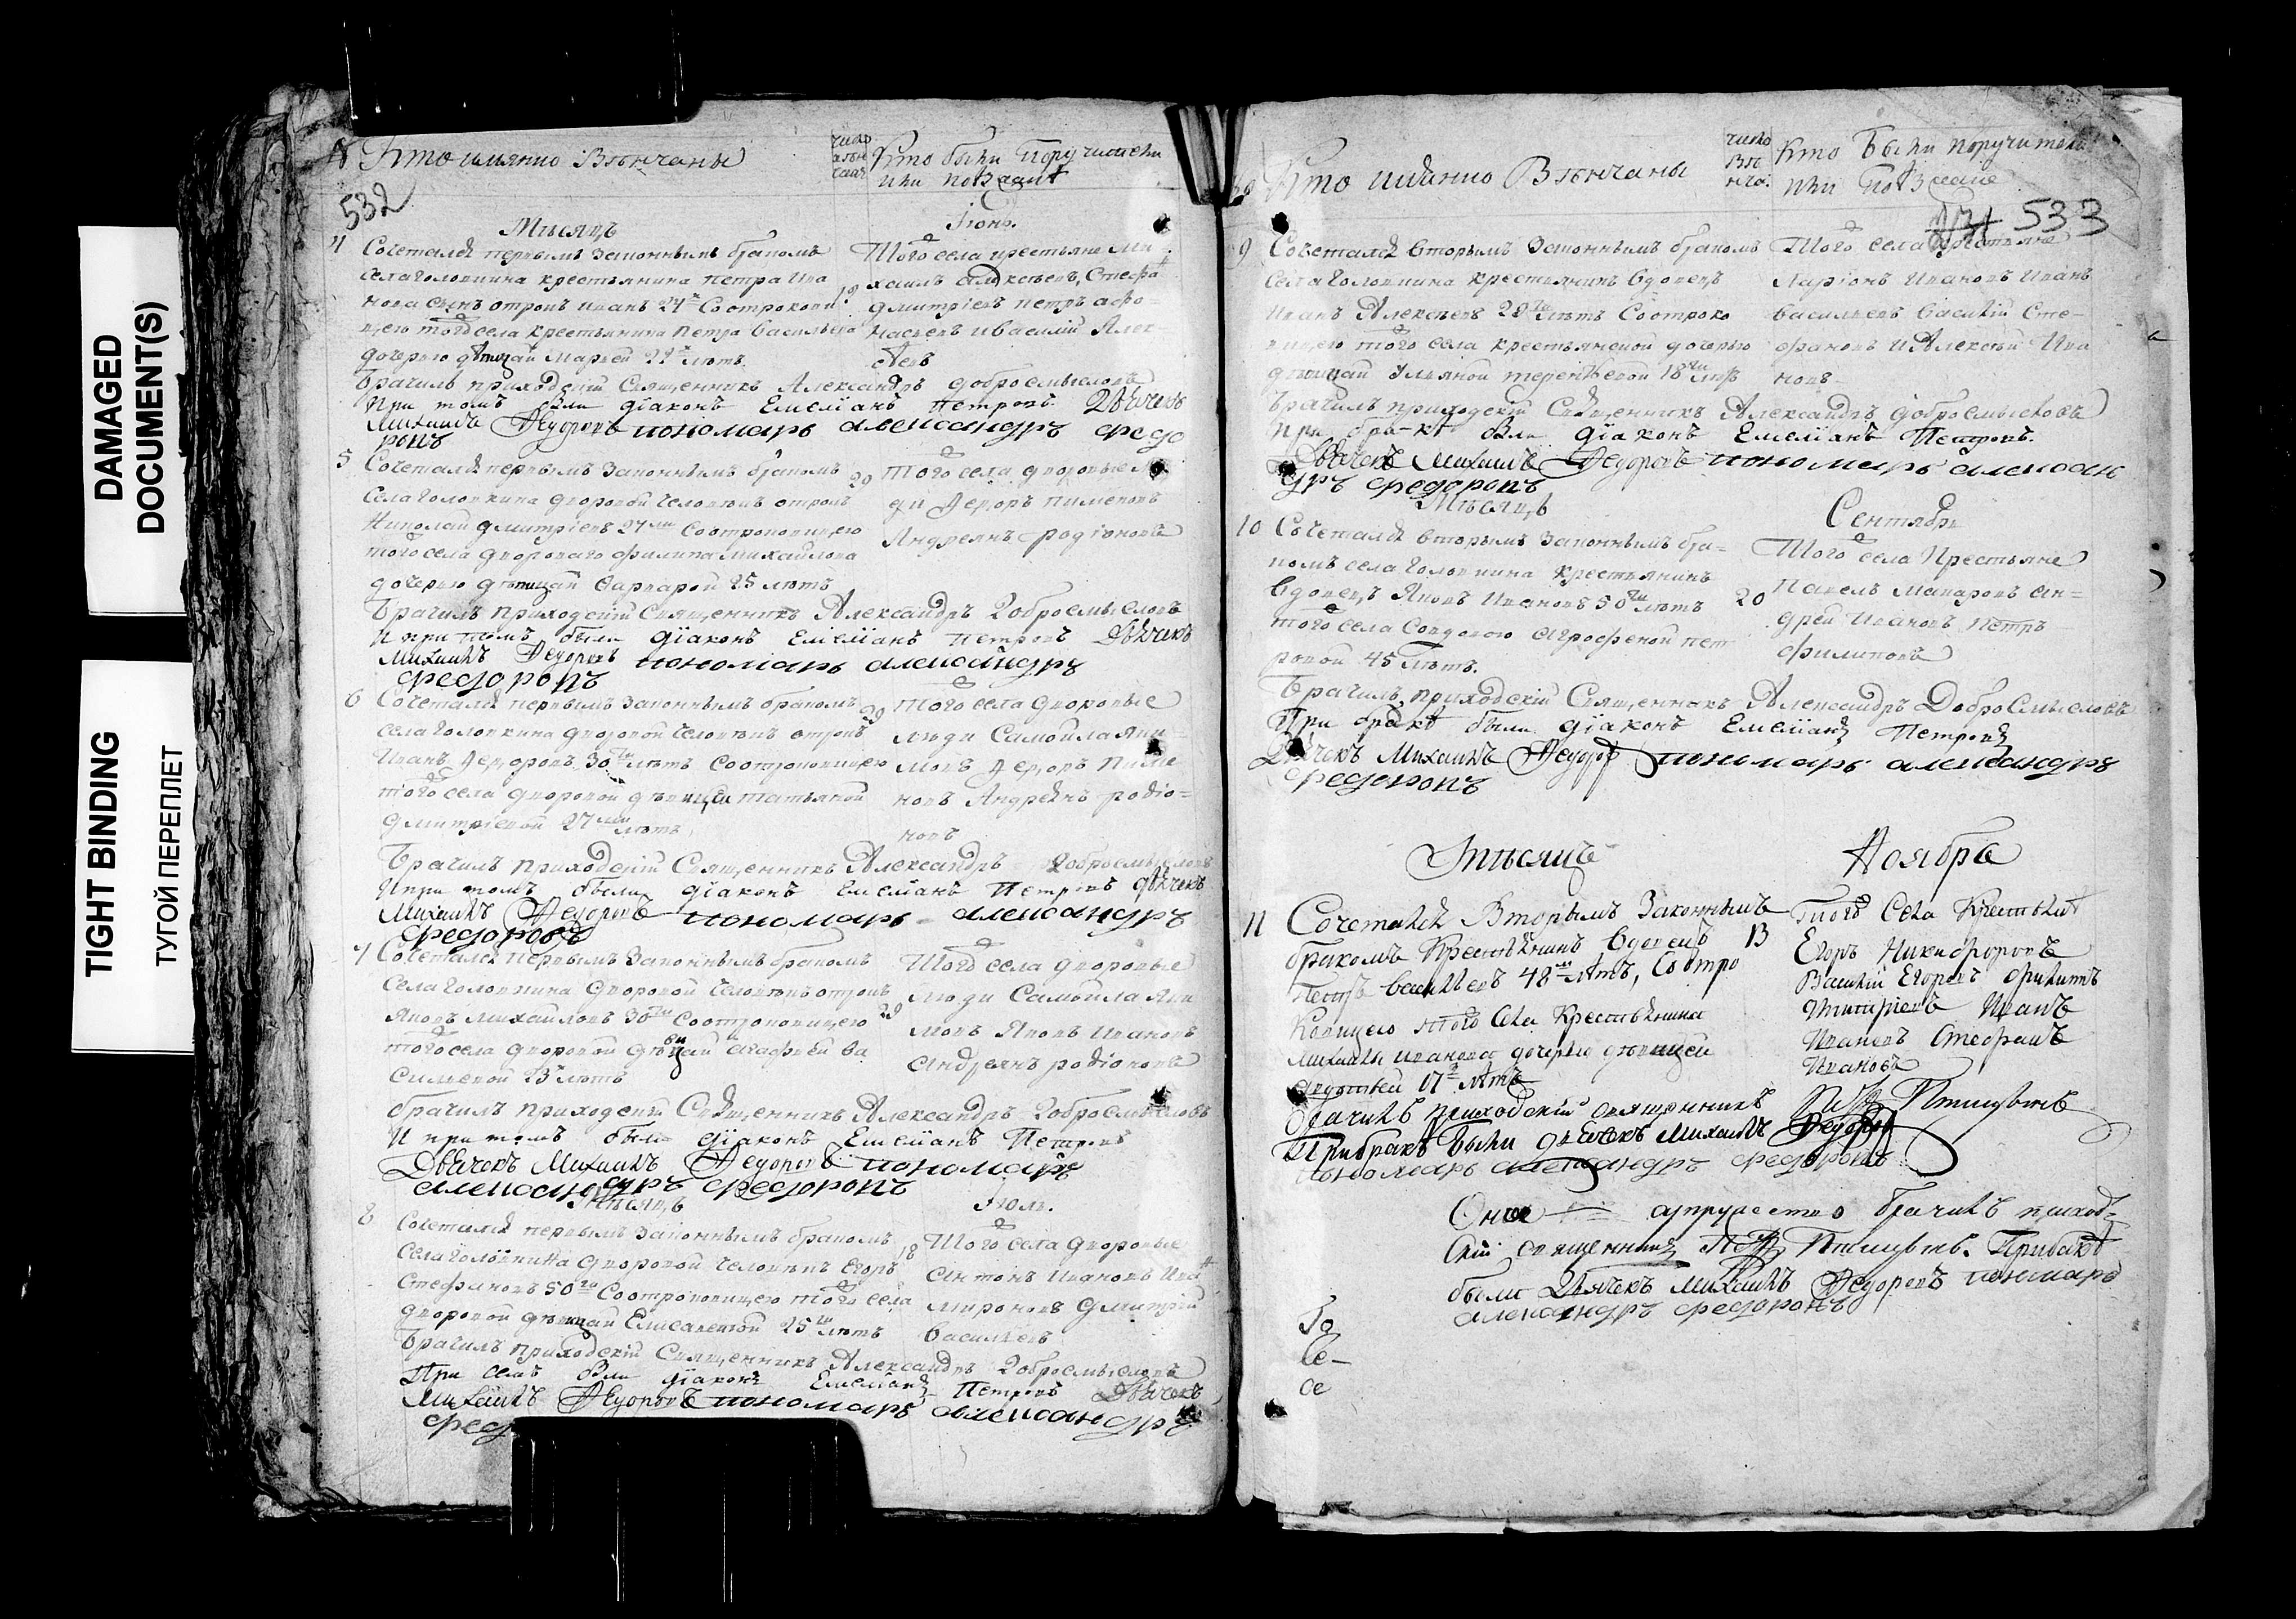 DAMAGED
DOCUMENT(S)
TIGHT BINDING
ТУГОЙ ПЕРЕПЛЕТ
№ Кто имянно Венчаны
число венчаний
Кто были Поручители
или поезжане
532
Месяцъ
Іюнь.
4 Сочетался первымъ законнымъ бракомъ
села Головкина крестьянина Петра Ива
нова сынъ отрокъ Иванъ 24 Сотроковои
цею того села крестьянина Петра Васильева
дочерью девицей Марьей 22 летъ
того села крестьяне Ми
хаилъ Алексеевъ, Стефанъ
Дмитріевъ Петръ Афо-
насьевъ и Василій Алек
сеевъ
Брачилъ приходскій Священникъ Александръ Добросмысловъ
При томъ были діаконъ Емеліанъ Петровъ Дьячекъ
Михаилъ Федоровъ пономарь александръ федо
ровъ
5 Сочетался первымъ законнымъ бракомъ
села Головкина дворовой человекъ отрокъ
Николай Дмитріевъ 27 Соотроковицею
того села дворового Филипа Михайлова
дочерью девицей Варварой 25 летъ
20
того села дворовые лю
ди Федоръ Пименовъ
Андреянъ родіоновъ
Брачилъ приходскій Священникъ Александръ Добросмысловъ
И при томъ были діаконъ Емеліанъ Петровъ Дьячекъ
Михаилъ Федоровъ пономарь александръ
федоровъ
6 Сочетался первымъ законнымъ бракомъ
села Головкина дворовой человекъ отрокъ
Иванъ Федоровъ 30 летъ соотроковицею
того села дворовой девицей татьяной
Дмитріевой 27 летъ
того села дворовые
люди Самойла Яки
мовъ Федоръ Пиме
новъ Андреянъ родіо=
новъ
Брачилъ приходскій Священникъ Александръ Добросмысловъ
И при томъ были діаконъ Емеліанъ Петровъ дьячекъ
Михаилъ Федоровъ пономарь александръ
федоровъ
7 Сочетался первымъ законнымъ бракомъ
села Головкина дворовой человекъ отрокъ
Яковъ Михайловъ 30 Соотроковицею
того села дворовой девицей Агафьей Ва
сильевой 23 летъ
29
того села дворовые
люди Самойла Яки
мовъ Яковъ Ивановъ
Андреянъ родіоновъ
брачилъ приходскій Священникъ Александръ Добросмысловъ
И при томъ были діаконъ Емеліанъ Петровъ
Дьячекъ Михаилъ Федоровъ пономарь
александръ федоровъ
Месяцъ
Июль.
8 Сочетался первымъ законнымъ бракомъ
села Головкина дворовой человекъ Егоръ
Стефановъ 50 Соотроковицею того села
дворовой девицей Елисаветой 25 летъ
18
того села дворовые
Антонъ Ивановъ Иванъ
Мироновъ Дмитрій
Васильевъ
Брачилъ приходскій Священникъ Александръ Добросмысловъ
При семъ были діаконъ Емеліанъ Петровъ Дьячекъ
Михаилъ Федоровъ пономарь александръ
Кто имянно Венчаны
число венча.
Кто Были поручители
или поезжане
533
9 Сочетался вторымъ законнымъ бракомъ
села Головкина крестьянинъ вдовецъ
Иванъ Алексеевъ 29 летъ Соотроко
вицею того села крестьянской дочерью
девицей Ульяной терентьевой 18 летъ
того села крестьяне
Ларіонъ Ивановъ Иванъ
Васильевъ Василій Сте-
фановъ и Алексей Ива
новъ
Брачилъ приходскій Священникъ Александръ Добросмысловъ
При браке были діаконъ Емеліанъ Петровъ.
Дьячекъ Михаилъ Федоровъ пономарь алексан
дръ федоровъ
Месяцъ
Сентябрь
10 Сочетался вторымъ законнымъ бра=
комъ села Головкина крестьянинъ
вдовецъ Яковъ Ивановъ 50 летъ
того села Совдовою Агрофеной Пет
ровой 45 летъ.
20
того села Крестьяне
Павелъ Макаровъ Ан=
дрей Ивановъ Петръ
Филиповъ
Брачилъ приходскій Священникъ Александръ Добросмысловъ
При браке были діаконъ Емеліанъ Петровъ
Дьячекъ Михаилъ Федоровъ пономарь александръ
федоровъ
Месяцъ
Ноябрь
11 Сочетался Вторымъ Законнымъ
бракомъ Крестьянинъ вдовецъ
Петръ Васильевъ 48 летъ, Соотро
ковицею того села Крестьянина
Михаилы Иванова дочерью девицей
17 летъ
13
Того Села Крестьяне
Егоръ Никифоровъ
Василій Егоровъ Филипъ
Дмитріевъ Иванъ
Ивановъ Стефанъ
Ивановъ
брачилъ приходскій священникъ
При браке были дьячекъ Михаилъ Федоровъ
пономарь александръ федоровъ
Оное супружество брачилъ приход-
скій священникъ
были Дьячекъ Михаилъ Федоровъ пономарь
александръ федоровъ
Го
Се-